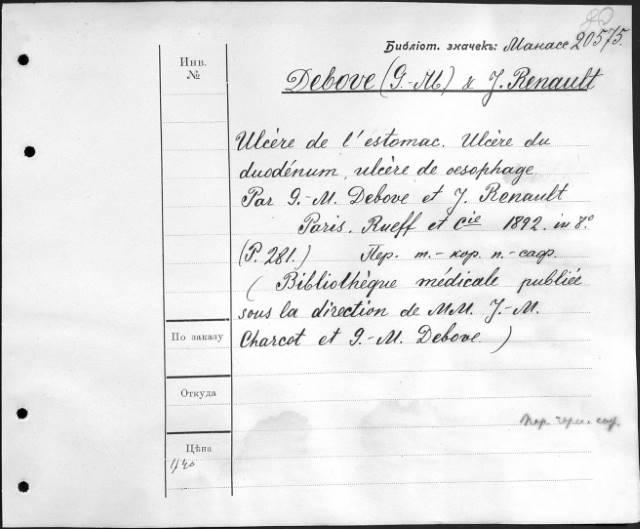 Библіот. значекъ: Манасс 20575.
Инв.
№
Debove (G.-M) & J. Renault
Ulcère de l'estomac. Ulcère du
duodénum, ulcère de oesophage
Par G.-M. Debove et J. Renault
Paris. Rueff et Cie 1892. in 8.º
(P. 281.) Пер. т.-кор. п.-саф.
( Bibliothèque médicale publiée
sous la direction de MM. J.-M.
Charcot et G.-M. Debove. )
По заказу
Откуда
Цѣна